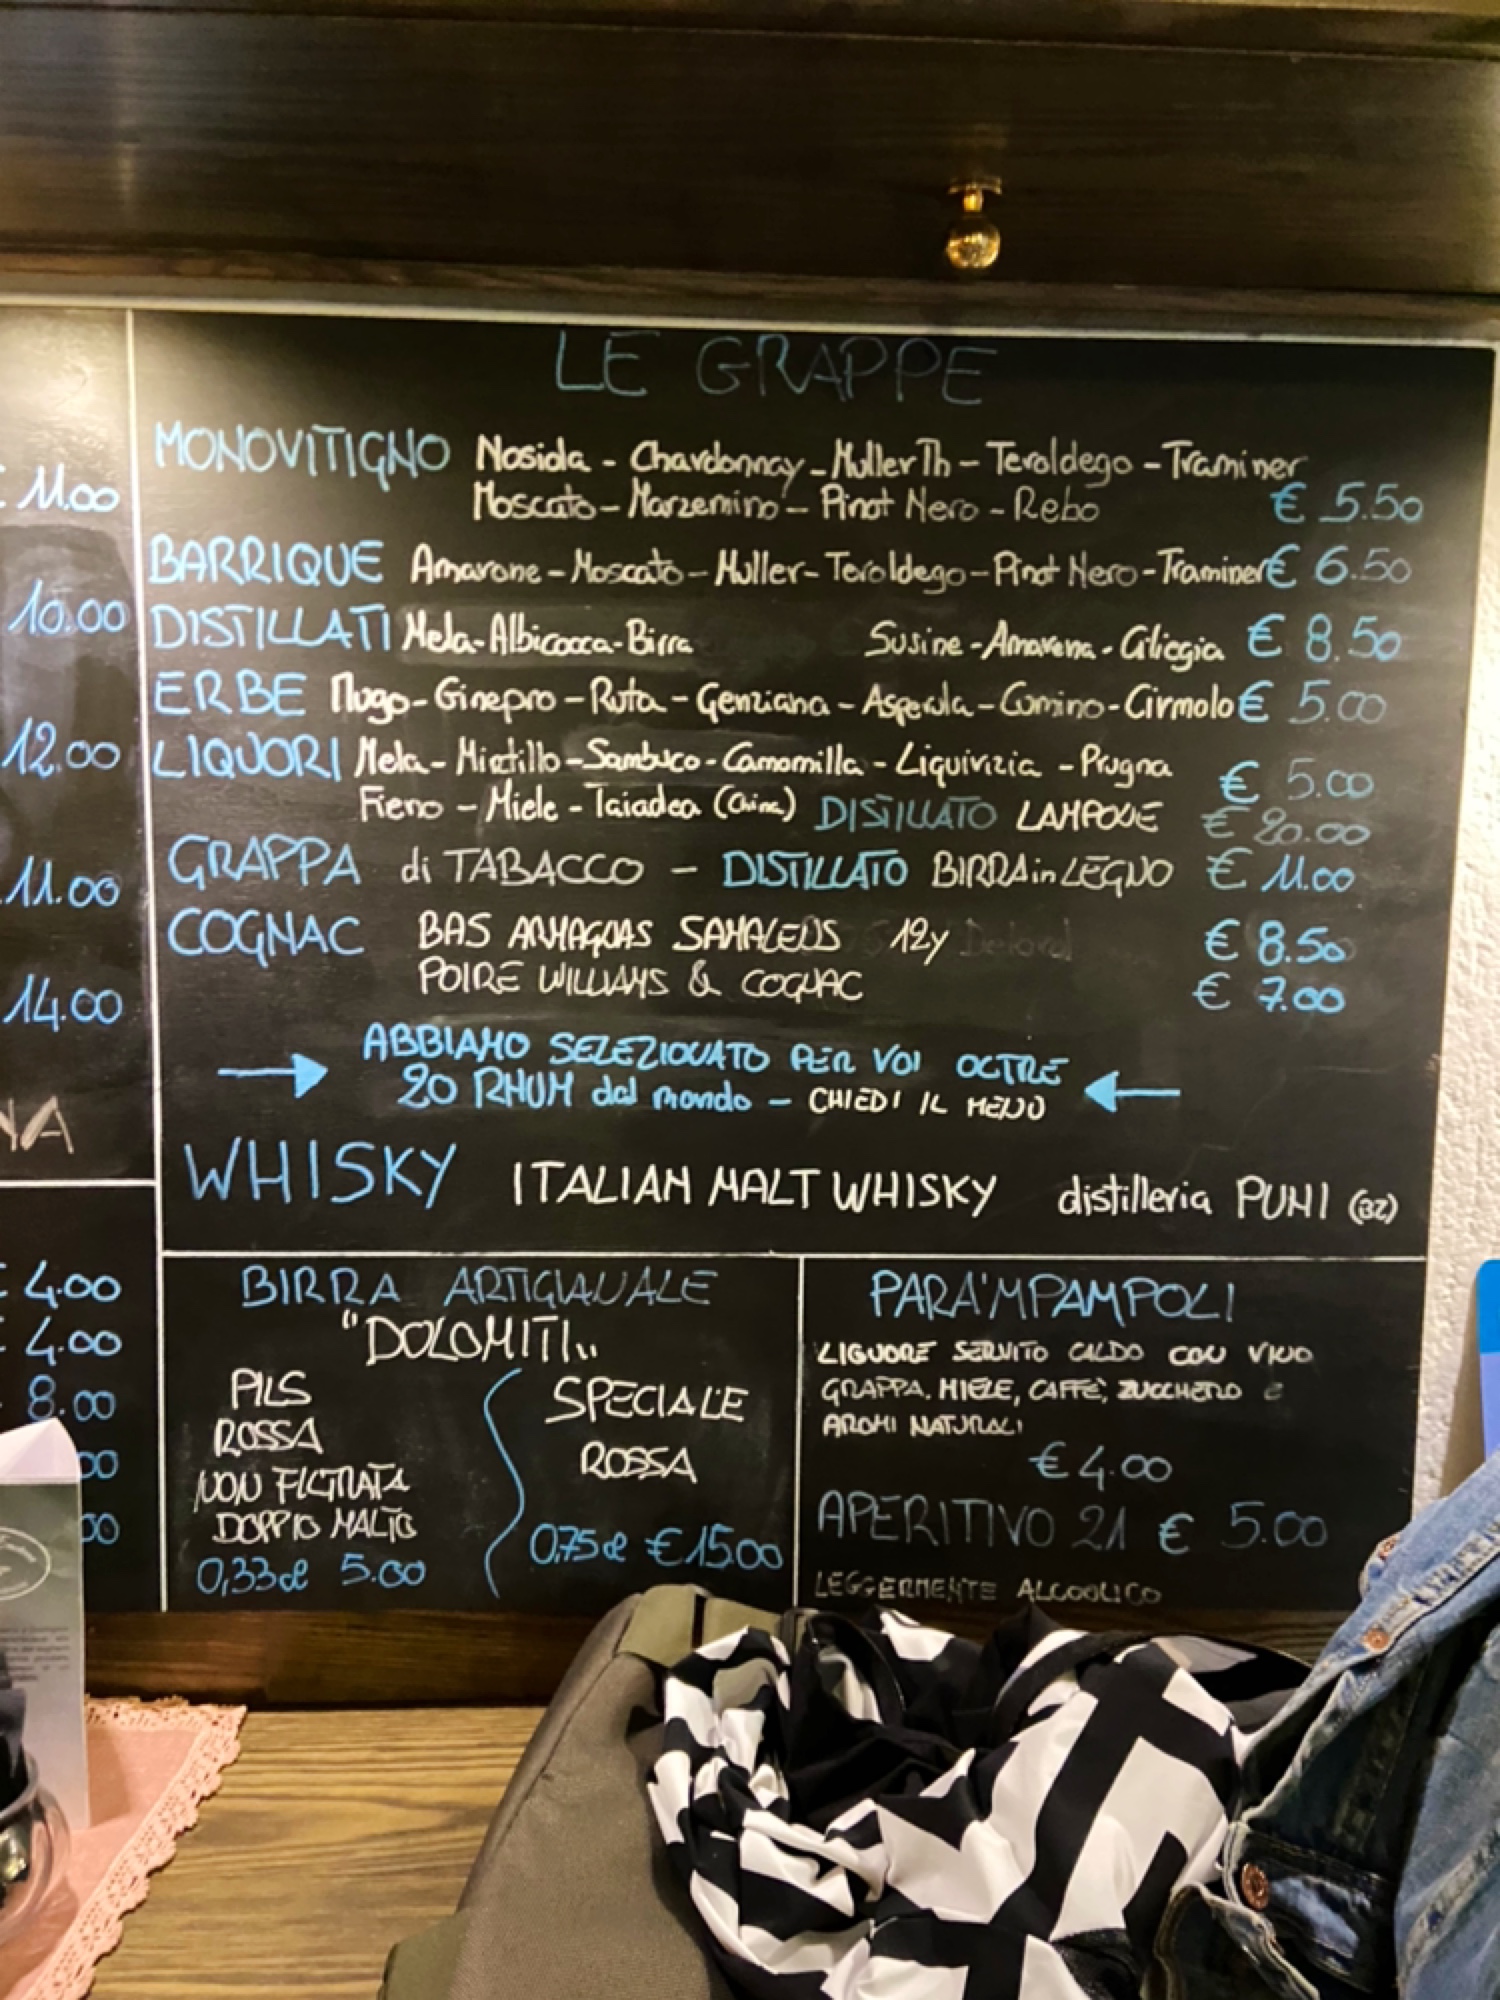 LE GRAPPE
MONOVITIGNO Nosiola - Chardonnay - Muller Th - Teroldego - Traminer
Moscato - Marzemino - Pinot Nero - Rebo € 5.50
BARRIQUE Amarone - Moscato - Muller - Teroldego - Pinot Nero - Traminer € 6.50
DISTILLATI Mela - Albicocca - Birra Susine - Amarena - Ciliegia € 8.50
ERBE Mugo - Ginepro - Ruta - Genziana - Asperula - Cumino - Cirmolo € 5.00
LIQUORI Mela - Mirtillo - Sambuco - Camomilla - Liquirizia - Prugna € 5.00
Fieno - Miele - Taiadea (China) DISTILLATO LAMPONE € 20.00
GRAPPA di TABACCO - DISTILLATO BIRRA in LEGNO € 11.00
COGNAC BAS ARMAGNAS SAMALENS 12y € 8.50
POIRE WILLIAMS & COGNAC € 7.00
ABBIAMO SELEZIONATO PER VOI OLTRE
20 RHUM dal mondo - CHIEDI IL MENÙ
WHISKY ITALIAN MALT WHISKY distilleria PUNI (BZ)
BIRRA ARTIGIANALE
"DOLOMITI"
PILS
ROSSA
NON FILTRATA
DOPPIO MALTO
0,33cl 5.00
SPECIALE
ROSSA
0,75cl € 15.00
PARA'MPAMPOLI
LIQUORE SERVITO CALDO CON VINO
GRAPPA, MIELE, CAFFÈ, ZUCCHERO E
AROMI NATURALI
€ 4.00
APERITIVO 21 € 5.00
LEGGERMENTE ALCOOLICO
€ 11.00
10.00
12.00
11.00
14.00
NA
€ 4.00
€ 4.00
8.00
00
00